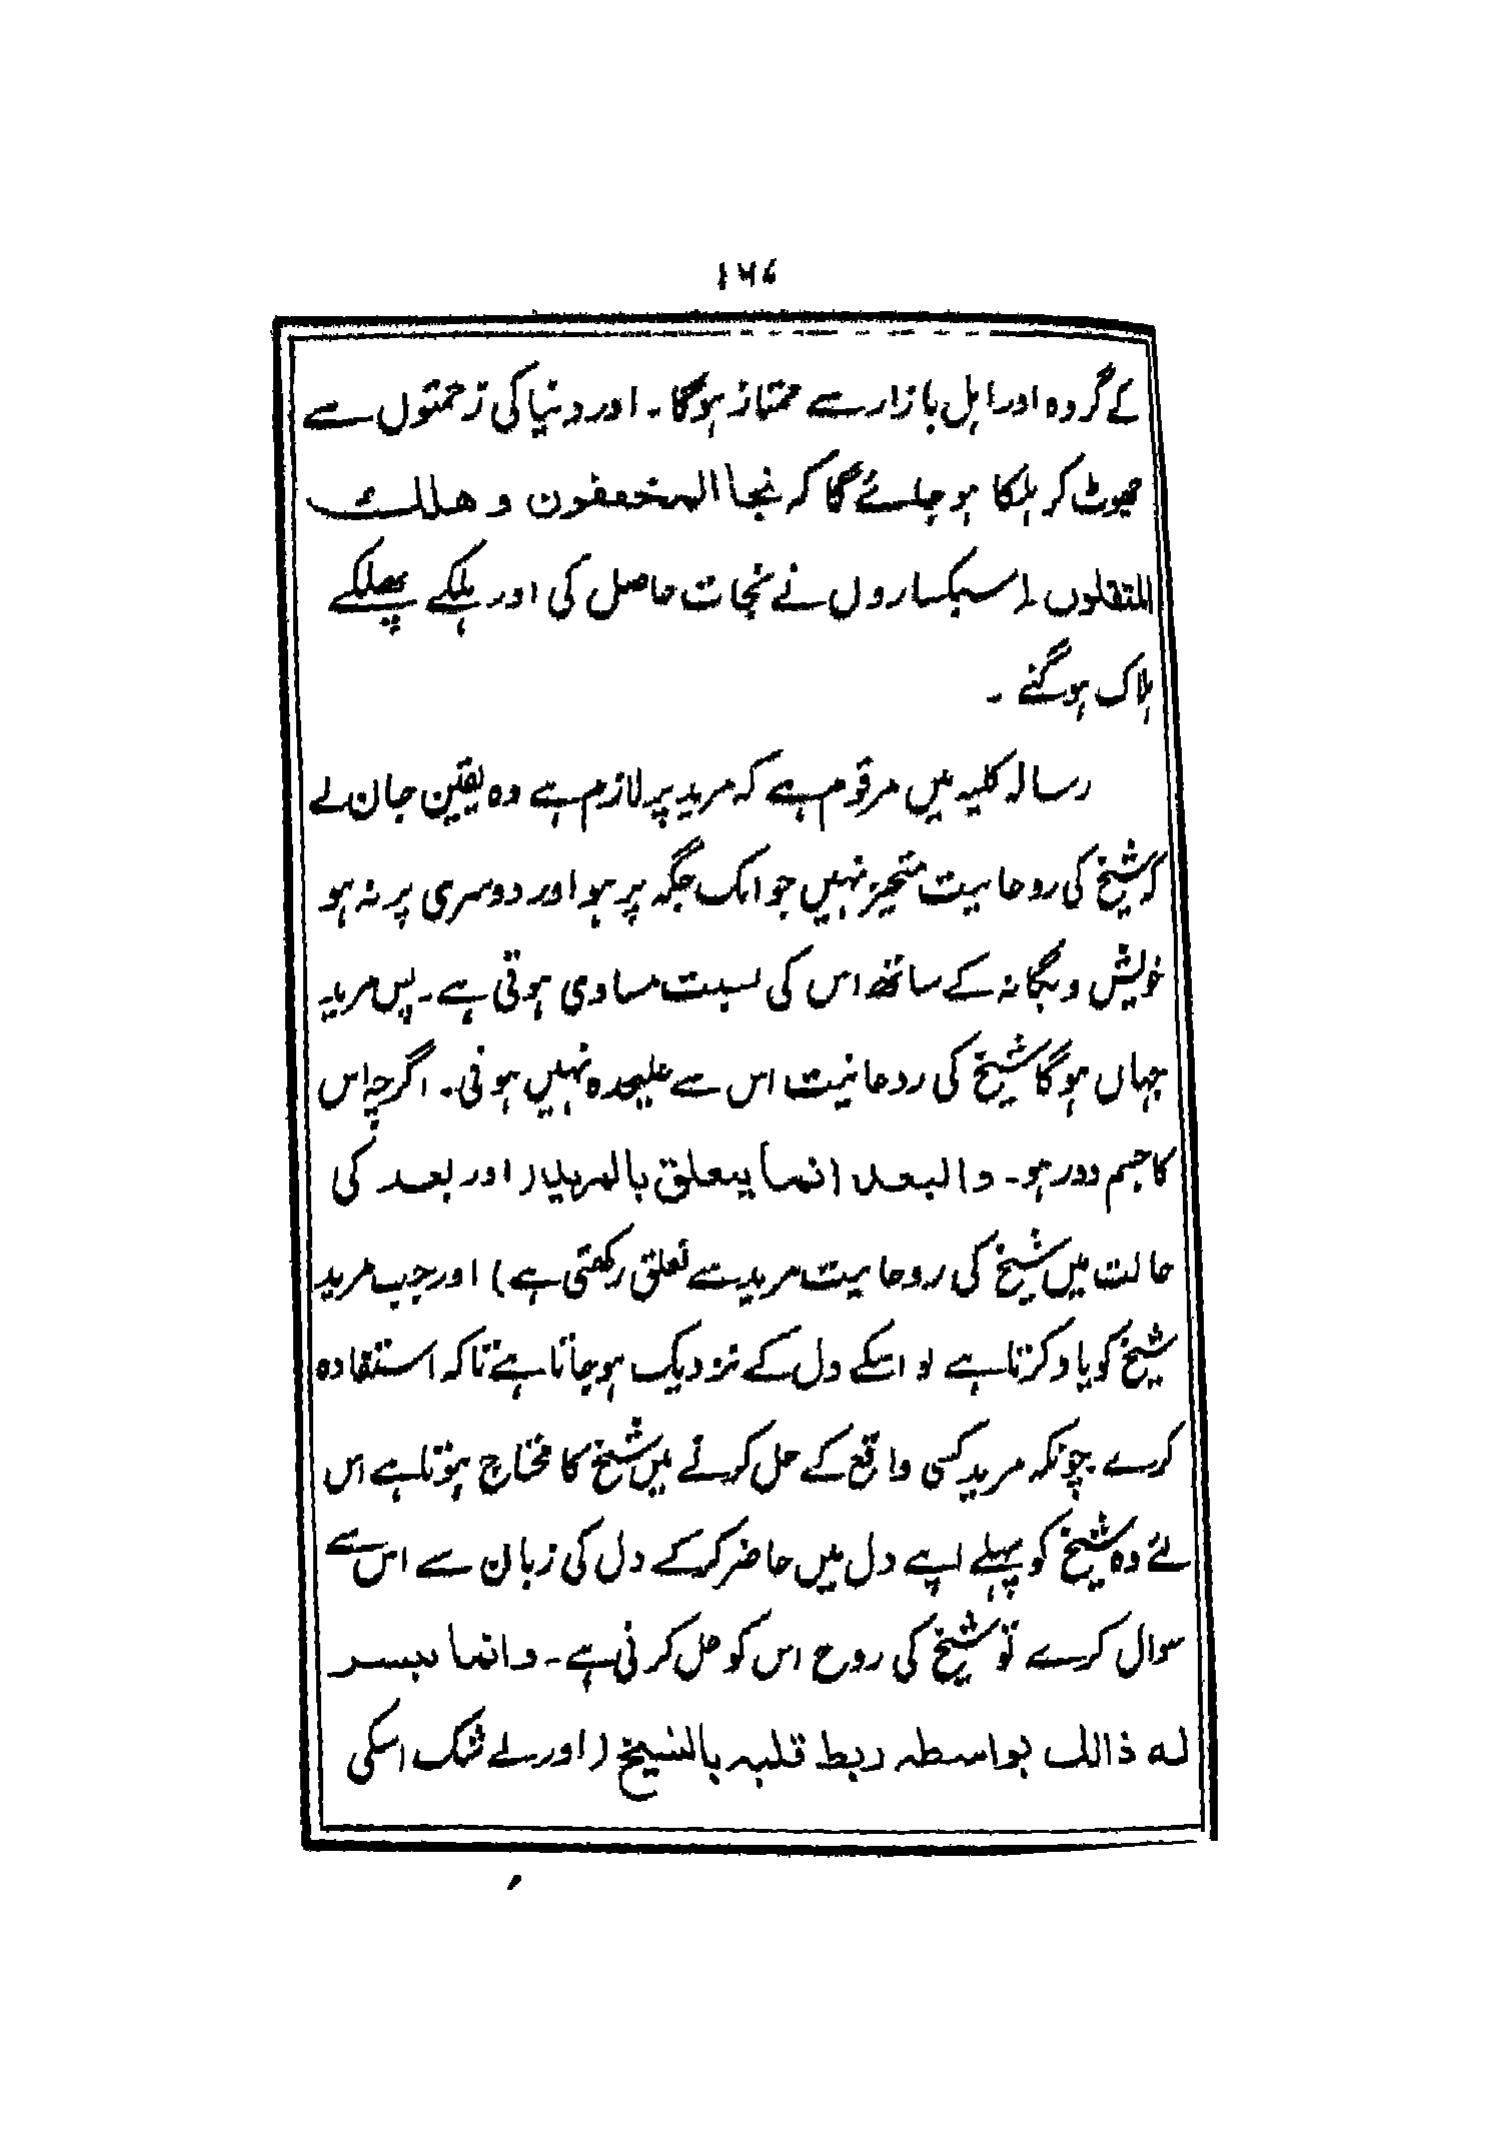 ۱۶۷
کے گروہ اور اہل بازار سے ممتاز ہوگا۔ اور دنیا کی زحمتوں سے
چھوٹ کر ہلکا ہو جائے گا کہ نجا المخففون و هلك
المثقلون۔ (سبکساروں نے نجات حاصل کی اور ہلکے پھلکے
ہلاک ہو گئے ۔
رسالہ کلیہ میں مرقوم ہے کہ مرید پر لازم ہے وہ یقین جان لے
کہ شیخ کی روحانیت متحیز نہیں جو ایک جگہ پر ہو اور دوسری پر نہ ہو
خویش و بیگانہ کے ساتھ اس کی نسبت مساوی ہوتی ہے۔ پس مرید
جہاں ہوگا شیخ کی روحانیت اس سے علیحدہ نہیں ہوتی۔ اگرچہ اس
کا جسم دور ہو۔ والبعد انما يتعلق بالمريد (اور بعد کی
حالت میں شیخ کی روحانیت مرید سے تعلق رکھتی ہے) اور جب مرید
شیخ کو یاد کرتا ہے تو اسکے دل کے نزدیک ہو جاتا ہے تاکہ استفادہ
کرے چونکہ مرید کسی واقع کے حل کرنے میں شیخ کا محتاج ہوتا ہے اس
لئے وہ شیخ کو پہلے اپنے دل میں حاضر کر کے دل کی زبان سے اس سے
سوال کرے تو شیخ کی روح اس کو حل کرتی ہے۔ وانما يتيسر
له ذالك بواسطه ربط قلبه بالشيخ (اور بے شک اسکی